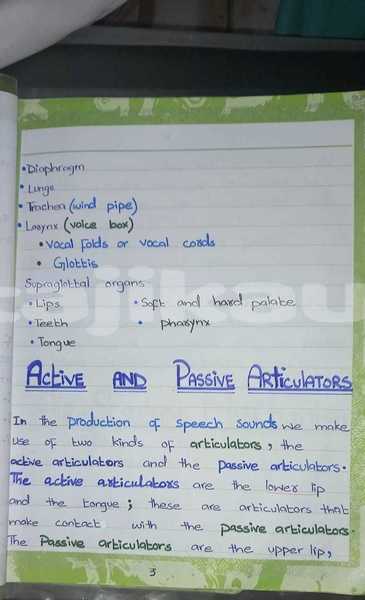 • Diaphragm
• Lungs
• Trachea (wind pipe)
• Larynx (voice box)
• Vocal folds or vocal cords
• Glottis
Supraglottal organs
• Lips • Soft and hard palate
• Teeth • pharynx
• Tongue
ACTIVE AND PASSIVE ARTICULATORS
In the production of speech sounds we make
use of two kinds of articulators, the
active articulators and the passive articulators.
The active articulators are the lower lip
and the tongue; these are articulators that
make contact with the passive articulators.
The Passive articulators are the upper lip,
3